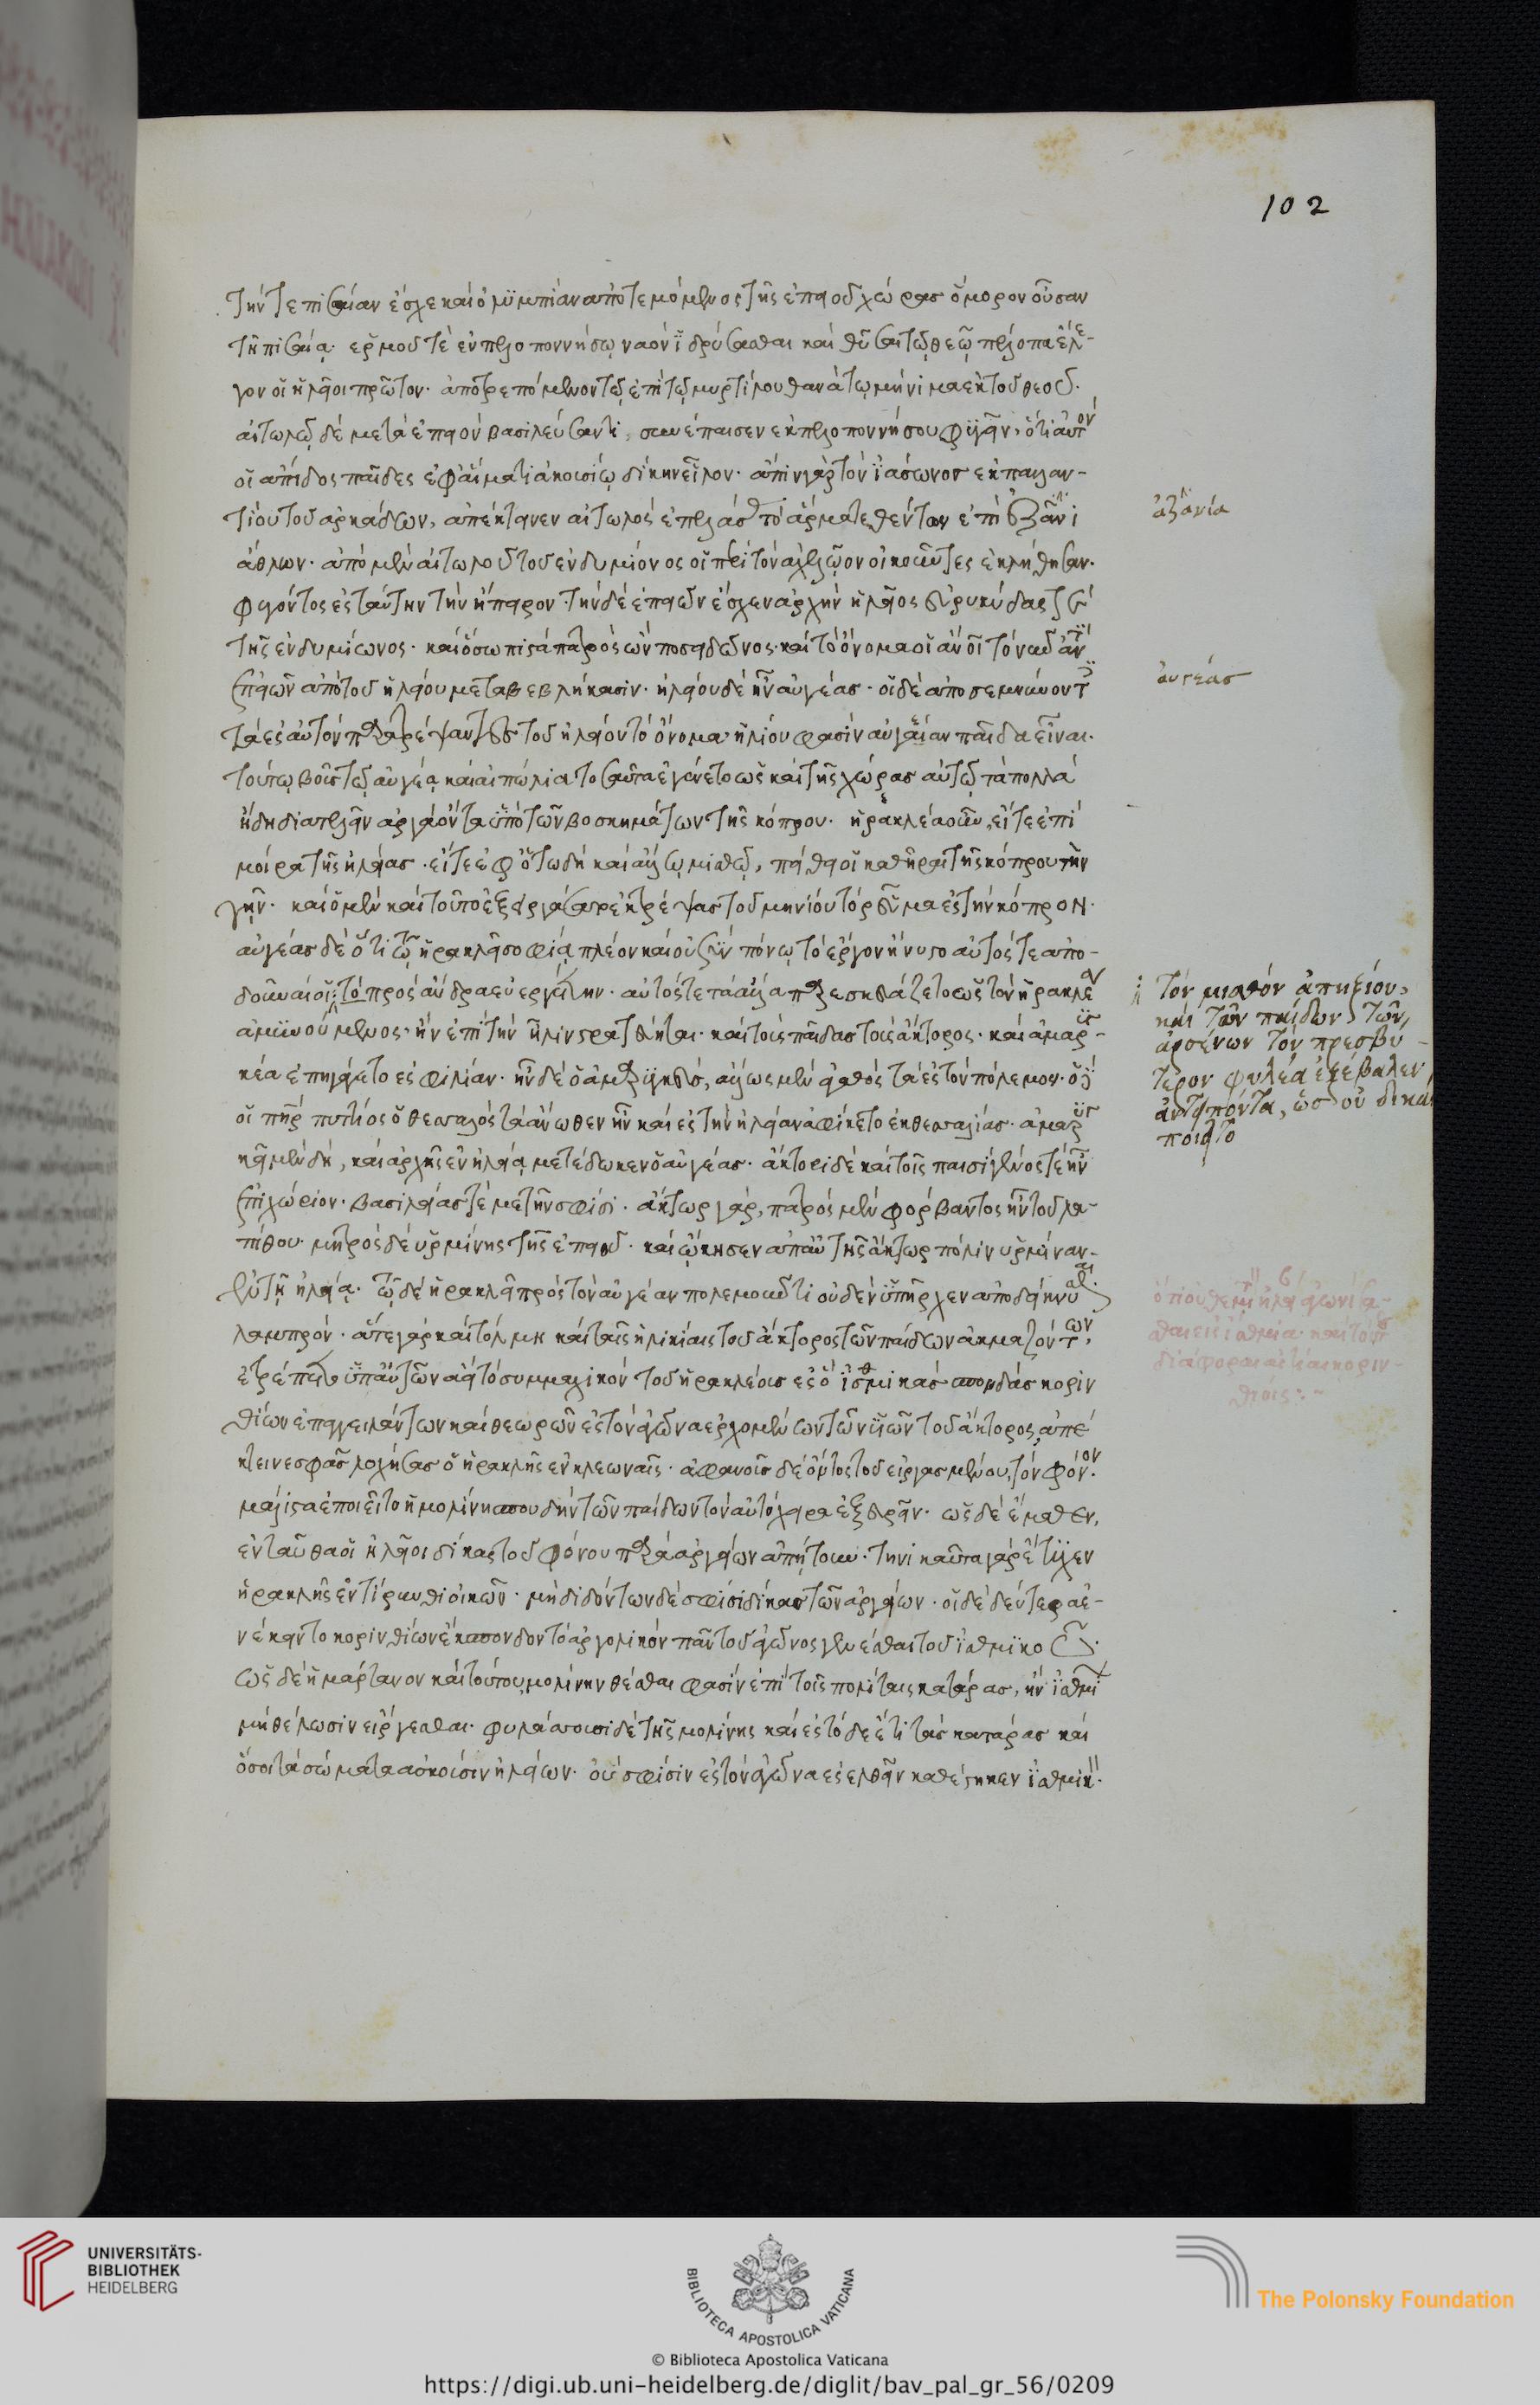 102
τήν τε πισαίαν ἔσχε καὶ ὀλυμπίαν ἀποτεμόμενος τῆς ἐπειοῦ χώρας ὅμορον οὖσαν
τῇ πισαίᾳ. ἑρμοῦ τὲ ἐν πελοποννήσῳ ναὸν ἱδρύσασθαι καὶ θῦσαι τῷ θεῷ πέλοπα ἔλε-
γον οἱ ἠλεῖοι πρῶτον. ἀποτρεπόμενον τῷ ἐπὶ τῷ μυρτίλου θανάτῳ μήνιμα ἐκ τοῦ θεοῦ.
αἰτωλῷ δὲ μετὰ ἐπειὸν βασιλεύσαντι, συνέπεσεν ἐκ πελοποννήσου φυγεῖν, ὅτι αὐτὸν
οἱ ἄπιδος παῖδες ἐφ' αἵματι ἀκουσίῳ δίκην εἷλον. ἄπιν γὰρ τὸν ἰάσωνος ἐκ παλλαν-
τίου τοῦ ἀρκάδων, ἀπέκτεινεν αἰτωλὸς ἐπελάσας τὸ ἅρμα τεθέντων ἐπὶ ἀζᾶνι
ἄθλων. ἀπὸ μὲν αἰτωλοῦ τοῦ ἐνδυμίονος οἱ περὶ τὸν ἀχελῷον οἰκοῦντες ἐκλήθησαν.
φυγόντος ἐς ταύτην τὴν ἤπειρον. τὴν δὲ ἐπειῶν ἔσχεν ἀρχὴν ἠλεῖος εὐρυκύδας τε
τῆς ἐνδυμίωνος. καὶ ὅσω πιστὰ πατρὸς ὢν ποσειδῶνος. καὶ τὸ ὄνομα οἱ ἄνοι τὸ νῦν ἀντὶ
ἐπειῶν ἀπὸ τοῦ ἠλείου μεταβεβλήκασιν. ἠλείου δὲ ἦν αὐγέας. οἱ δὲ ἀποσεμνύνοντες
τὰ ἐς αὐτὸν παρατρέψαντες τοῦ ἠλείου τὸ ὄνομα ἡλίου φασὶν αὐγέαν παῖδα εἶναι.
τούτῳ βοῦς τῷ αὐγέᾳ καὶ αἰπόλια τοσαῦτα ἐγένετο ὡς καὶ τῆς χώρας αὐτῷ τὰ πολλὰ
ἤδη διατελεῖν ἀργὰ ὄντα ὑπὸ τῶν βοσκημάτων τῆς κόπρου. ἡρακλέα οὖν, εἴτε ἐπὶ
μοίρα τῆς ἠλείας. εἴτε ἐφ' ὅτω δὴ καὶ ἄλλῳ μισθῷ, πείθει οἱ καθῆραι τῆς κόπρου τὴν
γῆν. καὶ ὁ μὲν καὶ τοῦτο ἐξειργάσατο ἐκτρέψας τοῦ μηνίου τὸ ῥεῦμα ἐς τὴν κόπρον.
αὐγέας δὲ ὅτι τῷ ἡρακλεῖ σοφίᾳ πλέον καὶ οὐ σὺν πόνῳ τὸ ἔργον ἤνυστο αὐτός τε ἀπο-
δοῦναί οἱ τὸ πρὸς ἄνδρα εὐεργέτην. αὐτός τε τὰ ἄλλα παρεσκευάζετο ὡς τὸν ἡρακλέα
ἀμυνούμενος. ἢν ἐπὶ τὴν ἦλιν στρατεύηται. καὶ τοὺς παῖδας τοὺς ἄκτορος. καὶ ἀμαρυγ-
κέα ἐπηγάγετο ἐς φιλίαν. ἦν δὲ ὁ ἀμαρυγκεύς, ἄλλως μὲν ἀγαθὸς τὰ ἐς τὸν πόλεμον. ὁ
οἱ πατὴρ πυττίος ὁ θεσσαλὸς τὰ ἄνωθεν ἦν καὶ ἐς τὴν ἠλείαν ἀφίκετο ἐκ θεσσαλίας. ἀμαρυγ
κεῖ μὲν δὴ, καὶ ἀρχῆς ἐν ἠλείᾳ μετέδωκεν ὁ αὐγέας. ἄκτορι δὲ καὶ τοῖς παισὶ γένος τὲ ἦν
ἐπιχώριον. βασιλείας τὲ μετῆν σφίσι. ἄκτωρ γὰρ, πατρὸς μὲν φόρβαντος ἦν τοῦ λα-
πίθου. μητρὸς δὲ ὑρμίνης τῆς ἐπειοῦ. καὶ ᾤκησεν ἀπ' αὐτῆς ἄκτωρ πόλιν ὑρμίναν.
ἐν τῇ ἠλείᾳ. τῷ δὲ ἡρακλεῖ πρὸς τὸν αὐγέαν πολεμοῦντι οὐδὲν ὑπῆρχεν ἀποδείκνυσθαι
λαμπρόν. ἅτε γὰρ καὶ τόλμῃ καὶ ταῖς ἡλικίαις τοῦ ἄκτορος τῶν παίδων ἀκμαζόντων,
ἐτρέπετο ὑπ' αὐτῶν ἀεὶ τὸ συμμαχικὸν τοῦ ἡρακλέους ἐς ὃ ἰσθμικὰς σπονδὰς κοριν
θίων ἐπαγγειλάντων καὶ θεωρῶν ἐς τὸν ἀγῶνα ἐρχομένων τῶν υἱῶν τοῦ ἄκτορος, ἀπέ
κτεινέ σφας λοχήσας ὁ ἡρακλῆς ἐν κλεωναῖς. ἀφανοῦς δὲ ὄντος τοῦ εἰργασμένου, τὸν φόνον.
μάλιστα ἐποιεῖτο ἡ μολίνη σπουδὴν τῶν παίδων τὸν αὐτόχειρα ἐξευρεῖν. ὡς δὲ ἔμαθεν,
ἐνταῦθα οἱ ἠλεῖοι δίκας τοῦ φόνου παρὰ ἀργείων ἀπῄτουν. τηνικαῦτα γὰρ ἔτυχεν
ἡρακλῆς ἐν τίρυνθι οἰκῶν. μὴ διδόντων δὲ σφίσι δίκας τῶν ἀργείων. οἱ δὲ δεύτερα ἐ-
νέκειντο κορινθίων ἔκσπονδον τὸ ἀργολικὸν πᾶν τοῦ ἀγῶνος γενέσθαι τοῦ ἰσθμικοῦ.
ὡς δὲ ἡμάρτανον καὶ τούτου, μολίνην θέσθαι φασὶν ἐπὶ τοῖς πολίταις κατάρας, ἢν ἰσθμίων
μὴ θέλωσιν εἴργεσθαι. φυλάσσουσι δὲ τῆς μολίνης καὶ ἐς τόδε ἔτι τὰς κατάρας καὶ
ὅσοι τὰ σώματα ἀσκοῦσιν ἠλείων. οὔ σφίσιν ἐς τὸν ἀγῶνα ἐσελθεῖν καθέστηκεν ἰσθμικ.
ἀζανία
αὐγέας
τὸν μισθὸν ἀπηξίου,
καὶ τῶν παίδων τῶν
ἀρσένων τὸν πρεσβύ-
τερον φυλέα ἐξέβαλεν
ἀντειπόντα, ὡς οὐ δίκαι
ποιεῖτο
UNIVERSITÄTS-
BIBLIOTHEK
HEIDELBERG
BIBLIOTECA APOSTOLICA VATICANA
The Polonsky Foundation
© Biblioteca Apostolica Vaticana
https://digi.ub.uni-heidelberg.de/diglit/bav_pal_gr_56/0209